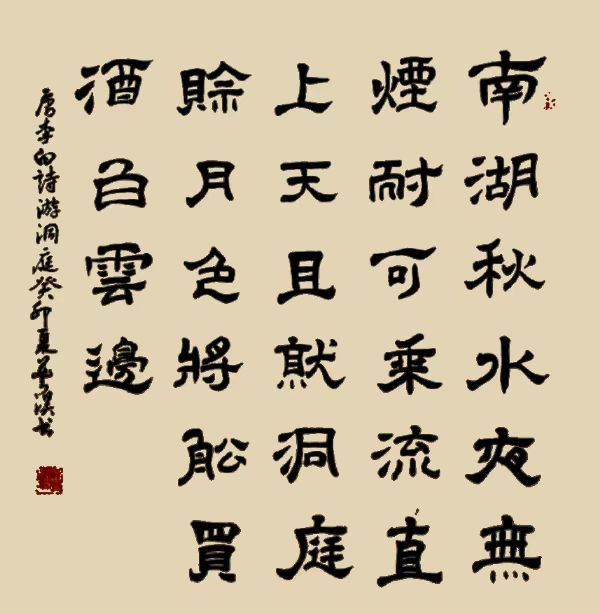 南湖秋水夜無
煙耐可乘流直
上天且就洞庭
賒月色將舩買
酒白雲邊
唐李白詩游洞庭癸卯夏书